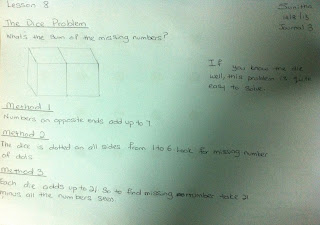 Lesson 8
The Dice Problem
Whats the sum of the missing numbers?
If you know the die
well, this problem is quite
easy to solve.
Method 1
Numbers on opposite ends add up to 7
Method 2
The dice is dotted on all sides from 1 to 6 look for missing number
of dots.
Method 3
Each die adds up to 21 So to find missing number take 21
minus all the numbers seen.
Journal 3